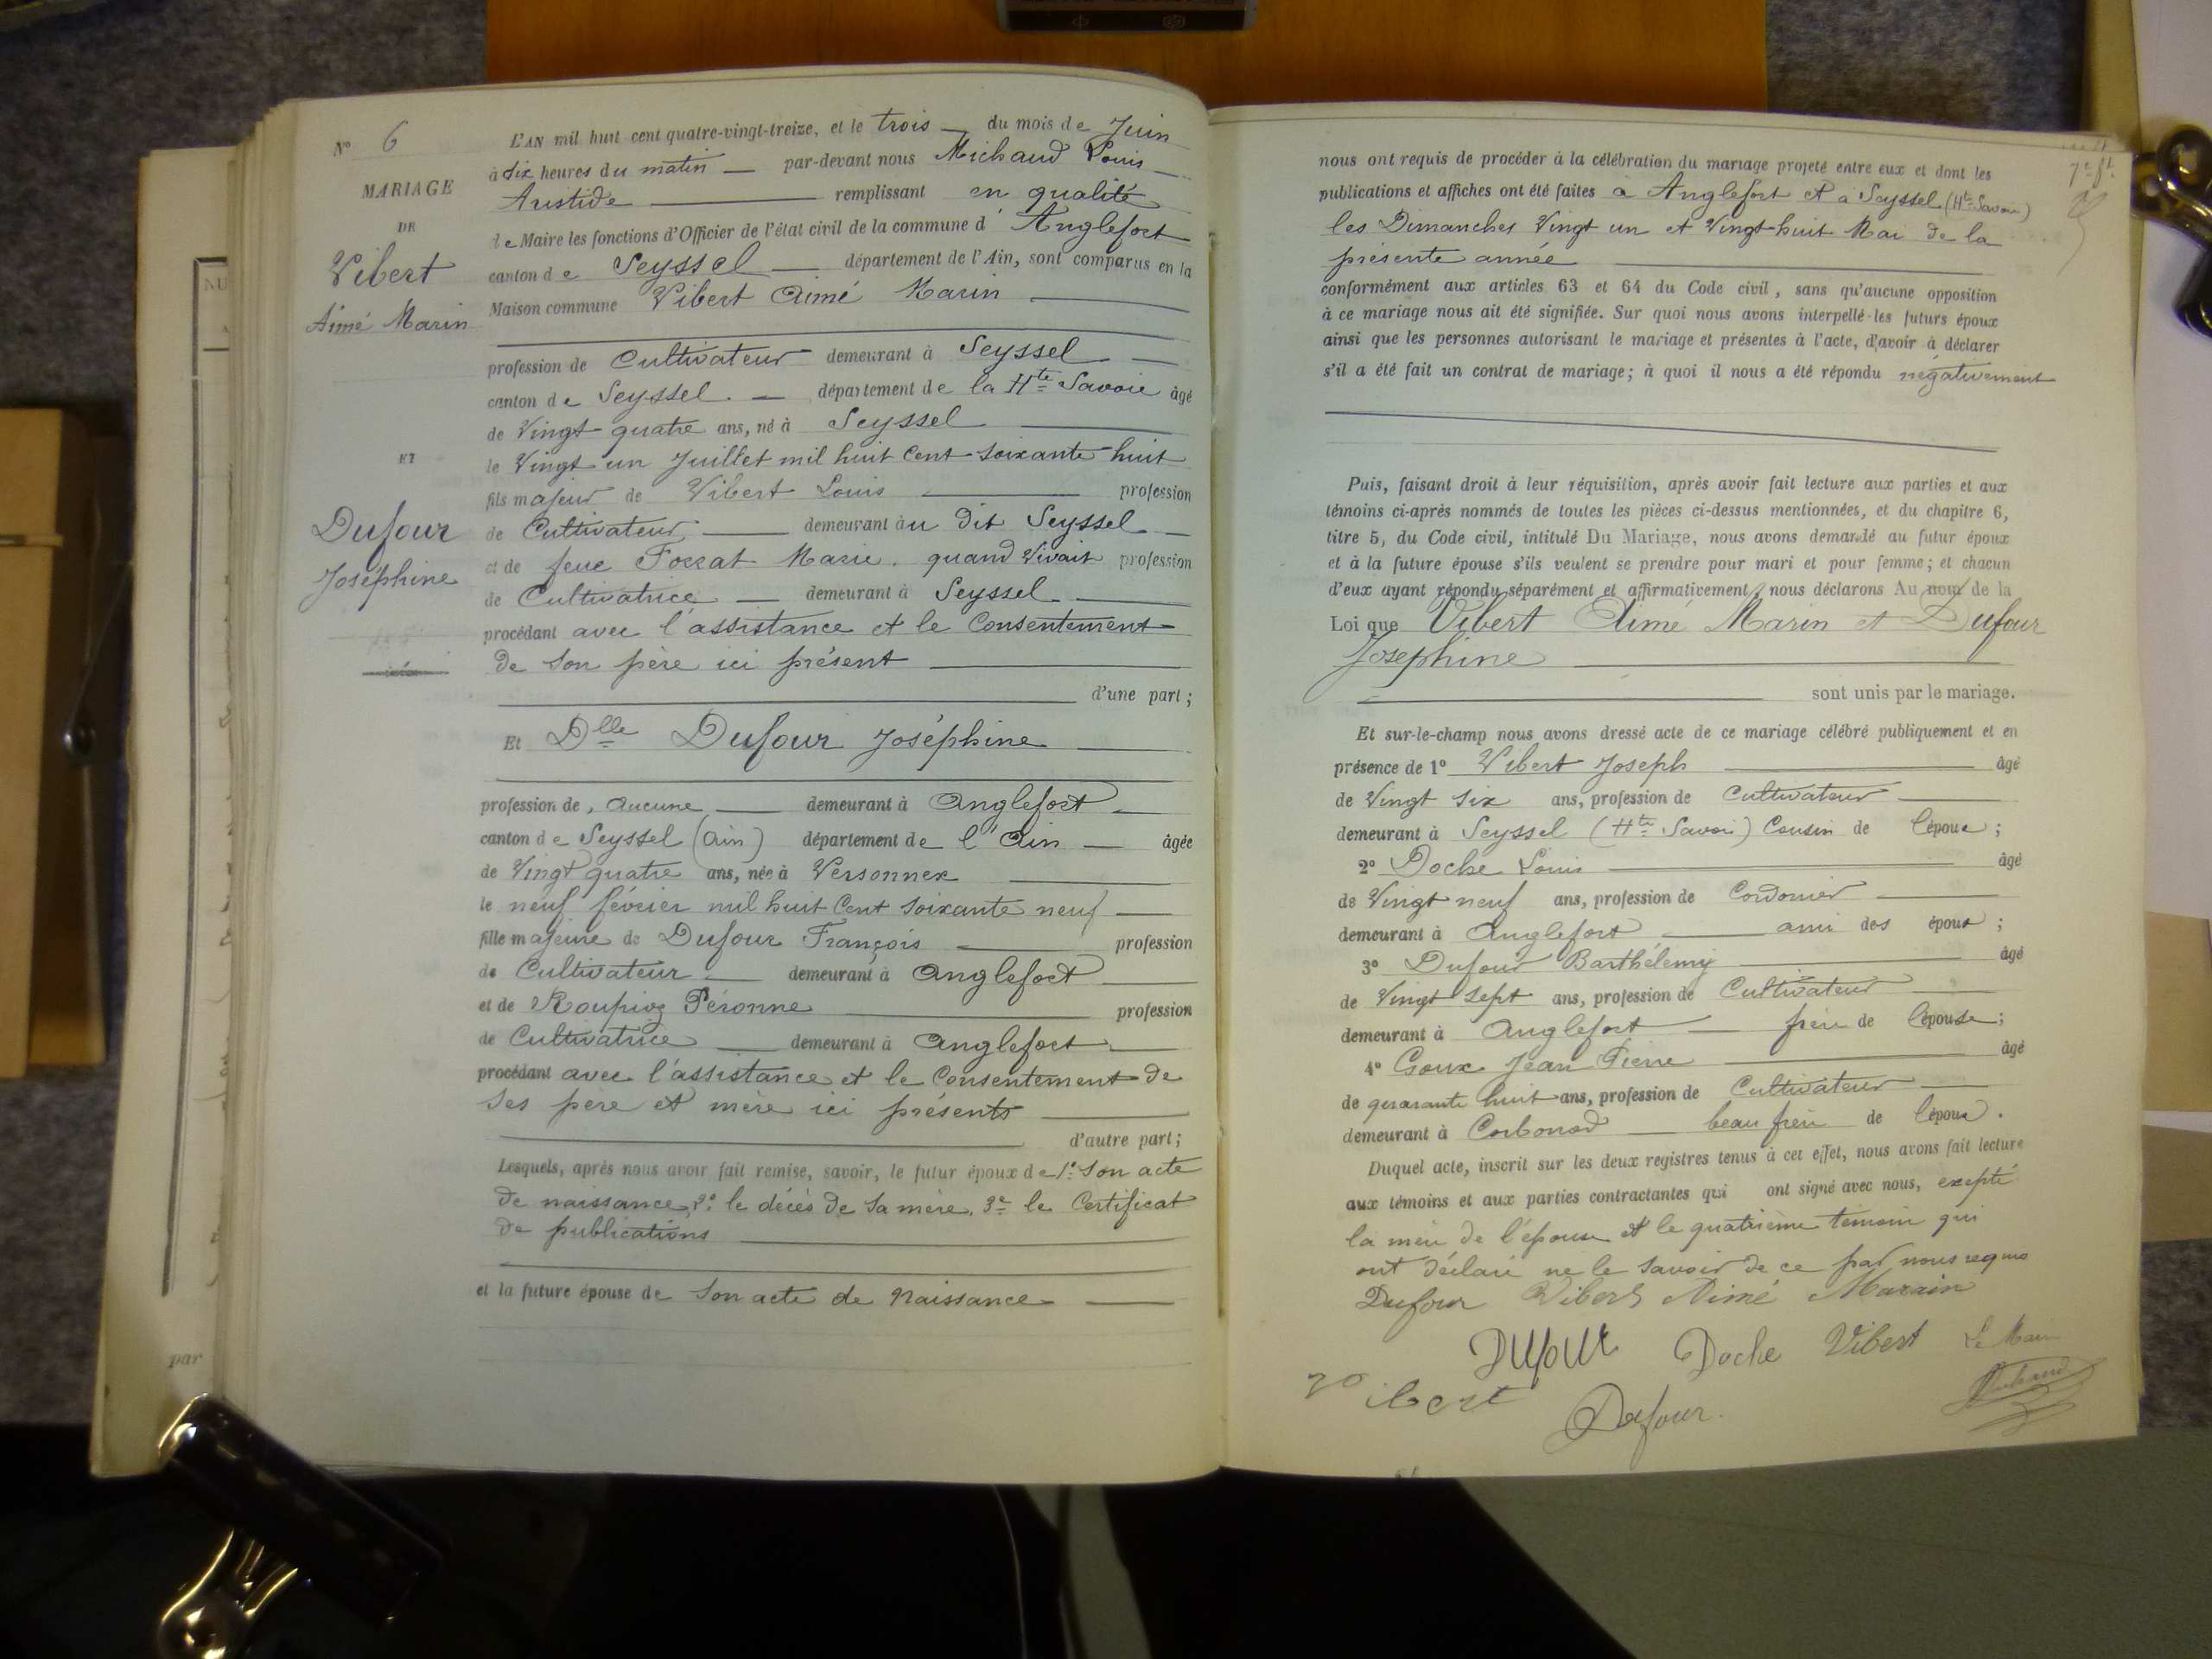 N° 6
MARIAGE
DE
Vibert
Aimé Marin
ET
Dufour
Joséphine
L'AN mil huit cent quatre-vingt-treize, et le trois du mois de Juin
à dix heures du matin par-devant nous Michaud Louis
Aristide remplissant en qualité
de Maire les fonctions d'Officier de l'état civil de la commune d'Anglefort
canton de Seyssel département de l'Ain, sont comparus en la
Maison commune Vibert Aimé Marin
profession de Cultivateur demeurant à Seyssel
canton de Seyssel. département de la Hte Savoie âgé
de Vingt-quatre ans, né à Seyssel
le Vingt un Juillet mil huit Cent soixante-huit
fils majeur de Vibert Louis profession
de Cultivateur demeurant au dit Seyssel
et de feue Forrat Marie. quand Vivait profession
de Cultivatrice demeurant à Seyssel
procédant avec l'assistance et le Consentement
de son père ici présent
d'une part;
Et Dlle Dufour Joséphine
profession de, aucune demeurant à Anglefort
canton de Seyssel (Ain) département de l'Ain âgée
de Vingt quatre ans, née à Versonnex
le neuf février mil huit Cent soixante neuf
fille majeure de Dufour François profession
de Cultivateur demeurant à Anglefort
et de Roupioz Péronne profession
de Cultivatrice demeurant à Anglefort
procédant avec l'assistance et le Consentement de
ses père et mère ici présents
d'autre part;
Lesquels, après nous avoir fait remise, savoir, le futur époux de 1° son acte
de naissance, 2° le décès de sa mère, 3° le Certificat
de publications
et la future épouse de son acte de Naissance
par
nous ont requis de procéder à la célébration du mariage projeté entre eux et dont les
publications et affiches ont été faites à Anglefort et à Seyssel (Hte Savoie)
les Dimanches Vingt un et Vingt-huit Mai de la
présente année
conformément aux articles 63 et 64 du Code civil, sans qu'aucune opposition
à ce mariage nous ait été signifiée. Sur quoi nous avons interpellé les futurs époux
ainsi que les personnes autorisant le mariage et présentes à l'acte, d'avoir à déclarer
s'il a été fait un contrat de mariage; à quoi il nous a été répondu négativement
Puis, faisant droit à leur réquisition, après avoir fait lecture aux parties et aux
témoins ci-après nommés de toutes les pièces ci-dessus mentionnées, et du chapitre 6,
titre 5, du Code civil, intitulé Du Mariage, nous avons demandé au futur époux
et à la future épouse s'ils veulent se prendre pour mari et pour femme; et chacun
d'eux ayant répondu séparément et affirmativement, nous déclarons Au nom de la
Loi que Vibert Aimé Marin et Dufour
Joséphine
sont unis par le mariage.
Et sur-le-champ nous avons dressé acte de ce mariage célébré publiquement et en
présence de 1° Vibert Joseph âgé
de Vingt six ans, profession de Cultivateur
demeurant à Seyssel (Hte Savoie) Cousin de l'époux;
2° Doche Louis âgé
de Vingt neuf ans, profession de Cordonier
demeurant à Anglefort ami des époux;
3° Dufour Barthélemy âgé
de Vingt sept ans, profession de Cultivateur
demeurant à Anglefort frère de l'épouse;
4° Goux Jean Pierre âgé
de quarante huit ans, profession de Cultivateur
demeurant à Corbonod beau frère de l'époux.
Duquel acte, inscrit sur les deux registres tenus à cet effet, nous avons fait lecture
aux témoins et aux parties contractantes qui ont signé avec nous, excepté
la mère de l'épouse et le quatrième témoin qui
ont déclaré ne le savoir de ce par nous requis
Dufour Vibert Aimé Marain
Dufour Doche Vibert Le Maire
Vibert Dufour. Michaud